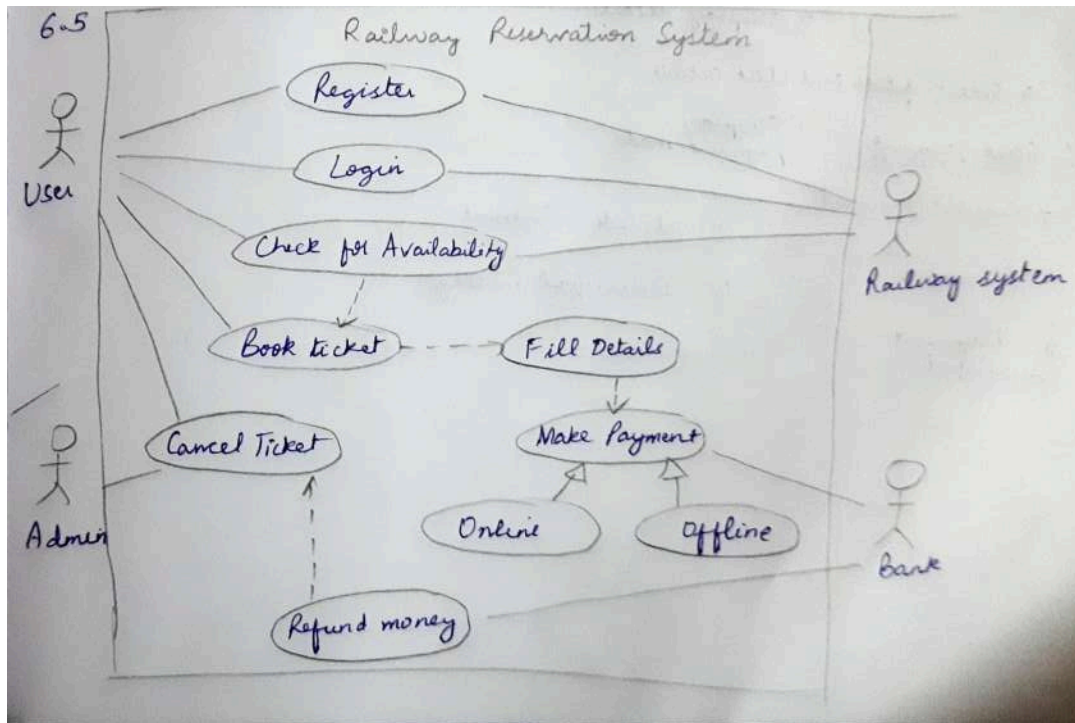 6.5
Railway Reservation System
Register
Login
User
Check for Availability
Railway system
Book ticket
Fill Details
Cancel Ticket
Make Payment
Admin
Online
Offline
Bank
Refund money